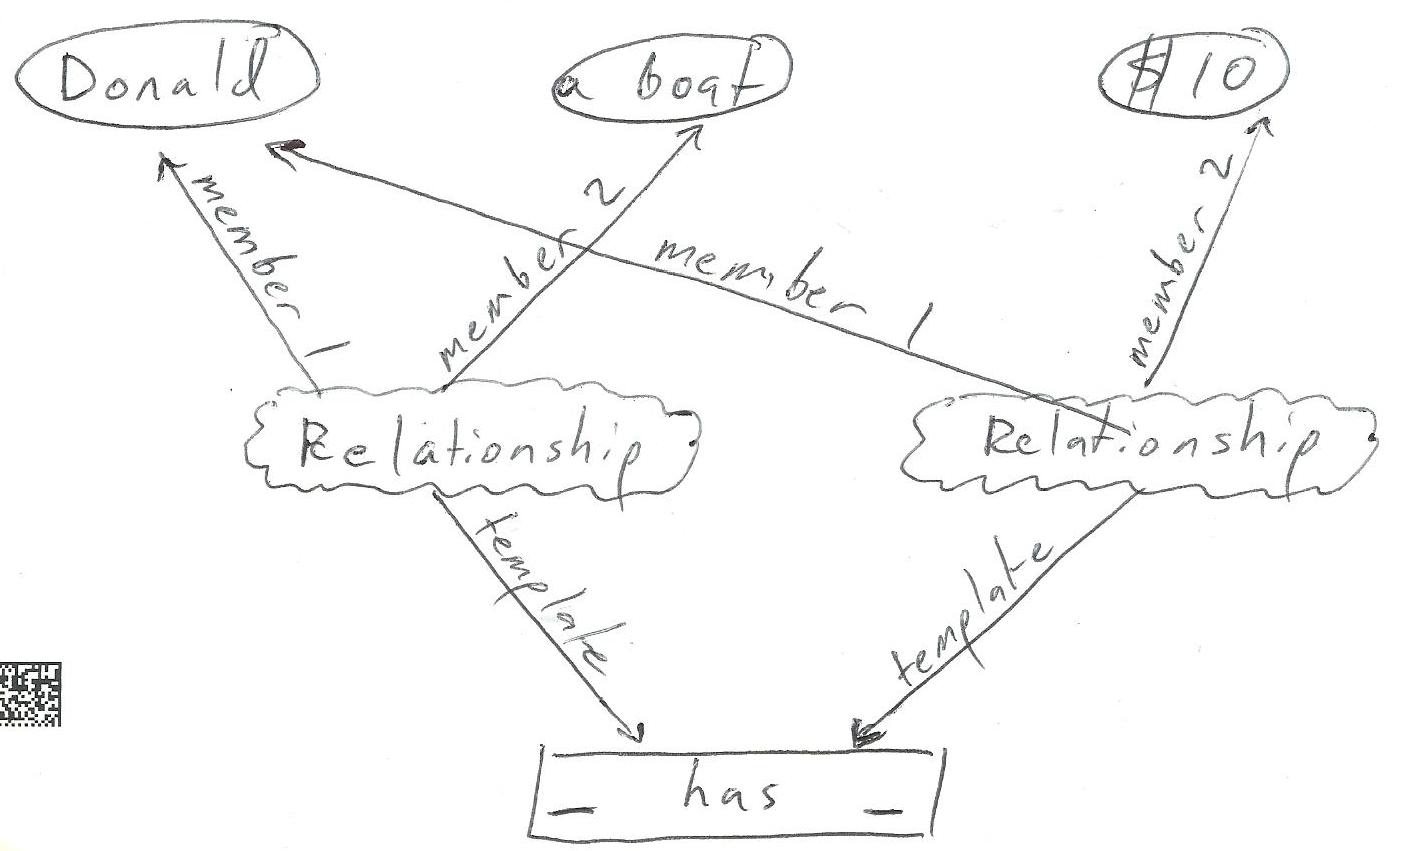 Donald
a boat
$10
member 1
member 2
member 1
member 2
Relationship
Relationship
template
template
_ has _